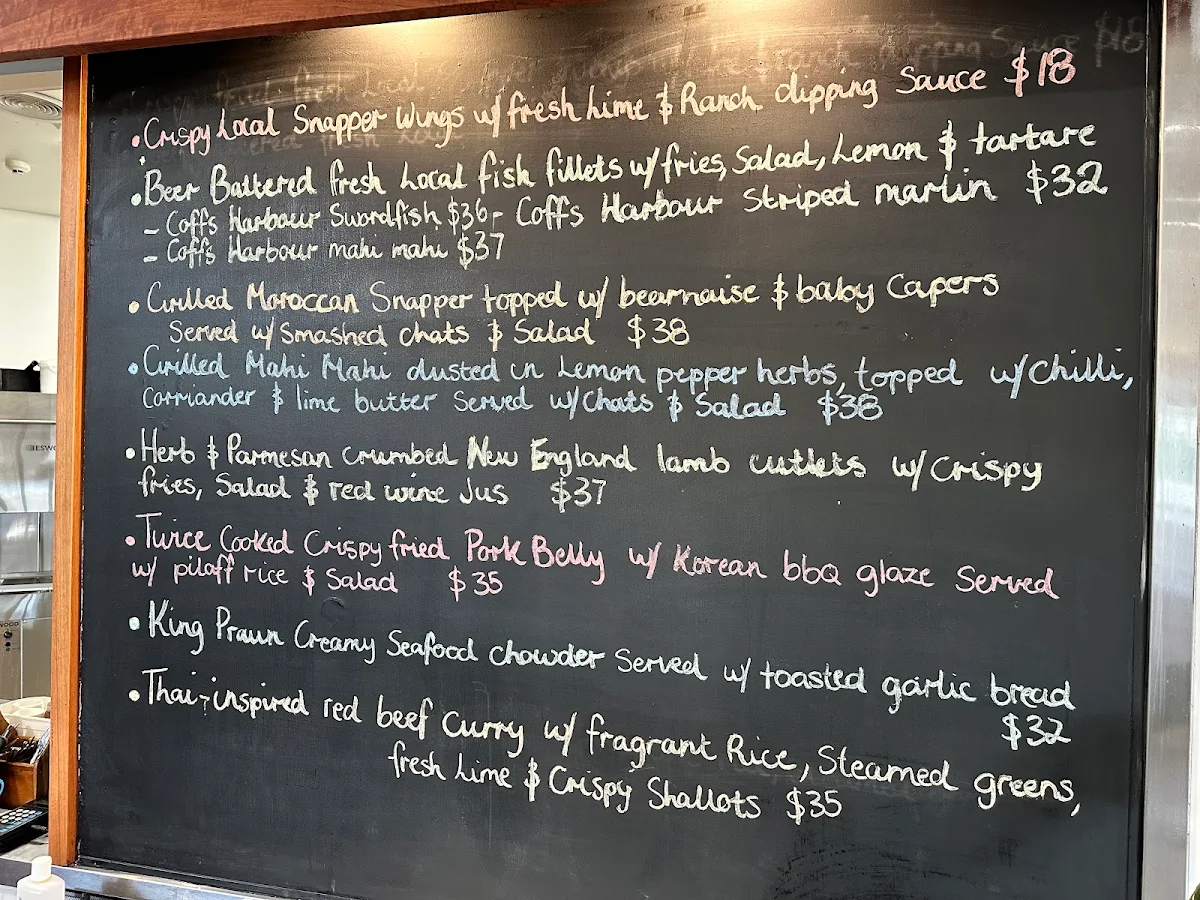 • Crispy Local Snapper Wings w/ fresh Lime & Ranch dipping Sauce $18
• Beer Battered fresh Local fish fillets w/ fries, Salad, Lemon & tartare
- Coffs Harbour Swordfish $36 - Coffs Harbour Striped marlin $32
- Coffs Harbour mahi mahi $37
• Grilled Moroccan Snapper topped w/ bearnaise & baby Capers
Served w/ Smashed chats & Salad $38
• Grilled Mahi Mahi dusted in Lemon pepper herbs, topped w/ Chilli,
Corriander & lime butter Served w/ Chats & Salad $38
• Herb & Parmesan crumbed New England lamb cutlets w/ Crispy
fries, Salad & red wine Jus $37
• Twice Cooked Crispy fried Pork Belly w/ Korean bbq glaze Served
w/ pilaff rice & Salad $35
• King Prawn Creamy Seafood chowder Served w/ toasted garlic bread
$32
• Thai-inspired red beef Curry w/ fragrant Rice, Steamed greens,
fresh Lime & Crispy Shallots $35